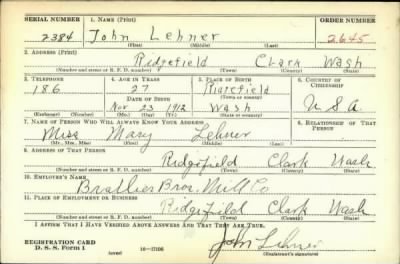 SERIAL NUMBER 1. NAME (Print) ORDER NUMBER
2384 John Lehner 2645
(First) (Middle) (Last)
2. ADDRESS (Print)
Ridgefield Clark Wash
(Number and street or R. F. D. number) (Town) (County) (State)
3. TELEPHONE 4. AGE IN YEARS 5. PLACE OF BIRTH 6. COUNTRY OF CITIZENSHIP
186 27
DATE OF BIRTH (Town or county)
Nov 23 1912 Wash U S A
(Exchange) (No.) (Mo.) (Day) (Yr.) (State or country)
7. NAME OF PERSON WHO WILL ALWAYS KNOW YOUR ADDRESS 8. RELATIONSHIP OF THAT PERSON
Miss Mary Lehner
(Mr., Mrs., Miss) (First) (Middle) (Last)
9. ADDRESS OF THAT PERSON
Ridgefield Clark Wash
(Number and street or R. F. D. number) (Town) (County) (State)
10. EMPLOYER'S NAME
Bros. Mill Co
11. PLACE OF EMPLOYMENT OR BUSINESS
Ridgefield Clark Wash
(Number and street or R. F. D. number) (Town) (County) (State)
I AFFIRM THAT I HAVE VERIFIED ABOVE ANSWERS AND THAT THEY ARE TRUE.
REGISTRATION CARD
D. S. S. Form 1 (over) 16—17105 John Lehner
(Registrant's signature)